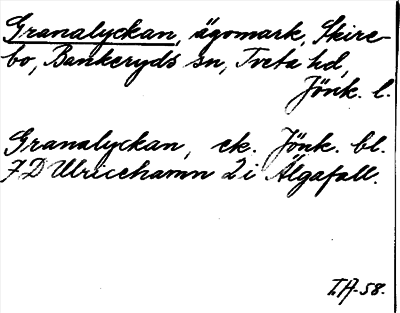 Granalyckan, ägomark, Skire-
bo, Bankeryds sn, Tveta hd,
Jönk. l.
Granalyckan, ek. Jönk. bl.
7 D Ulricehamn 2 i Älgafall.
I.A. 58.